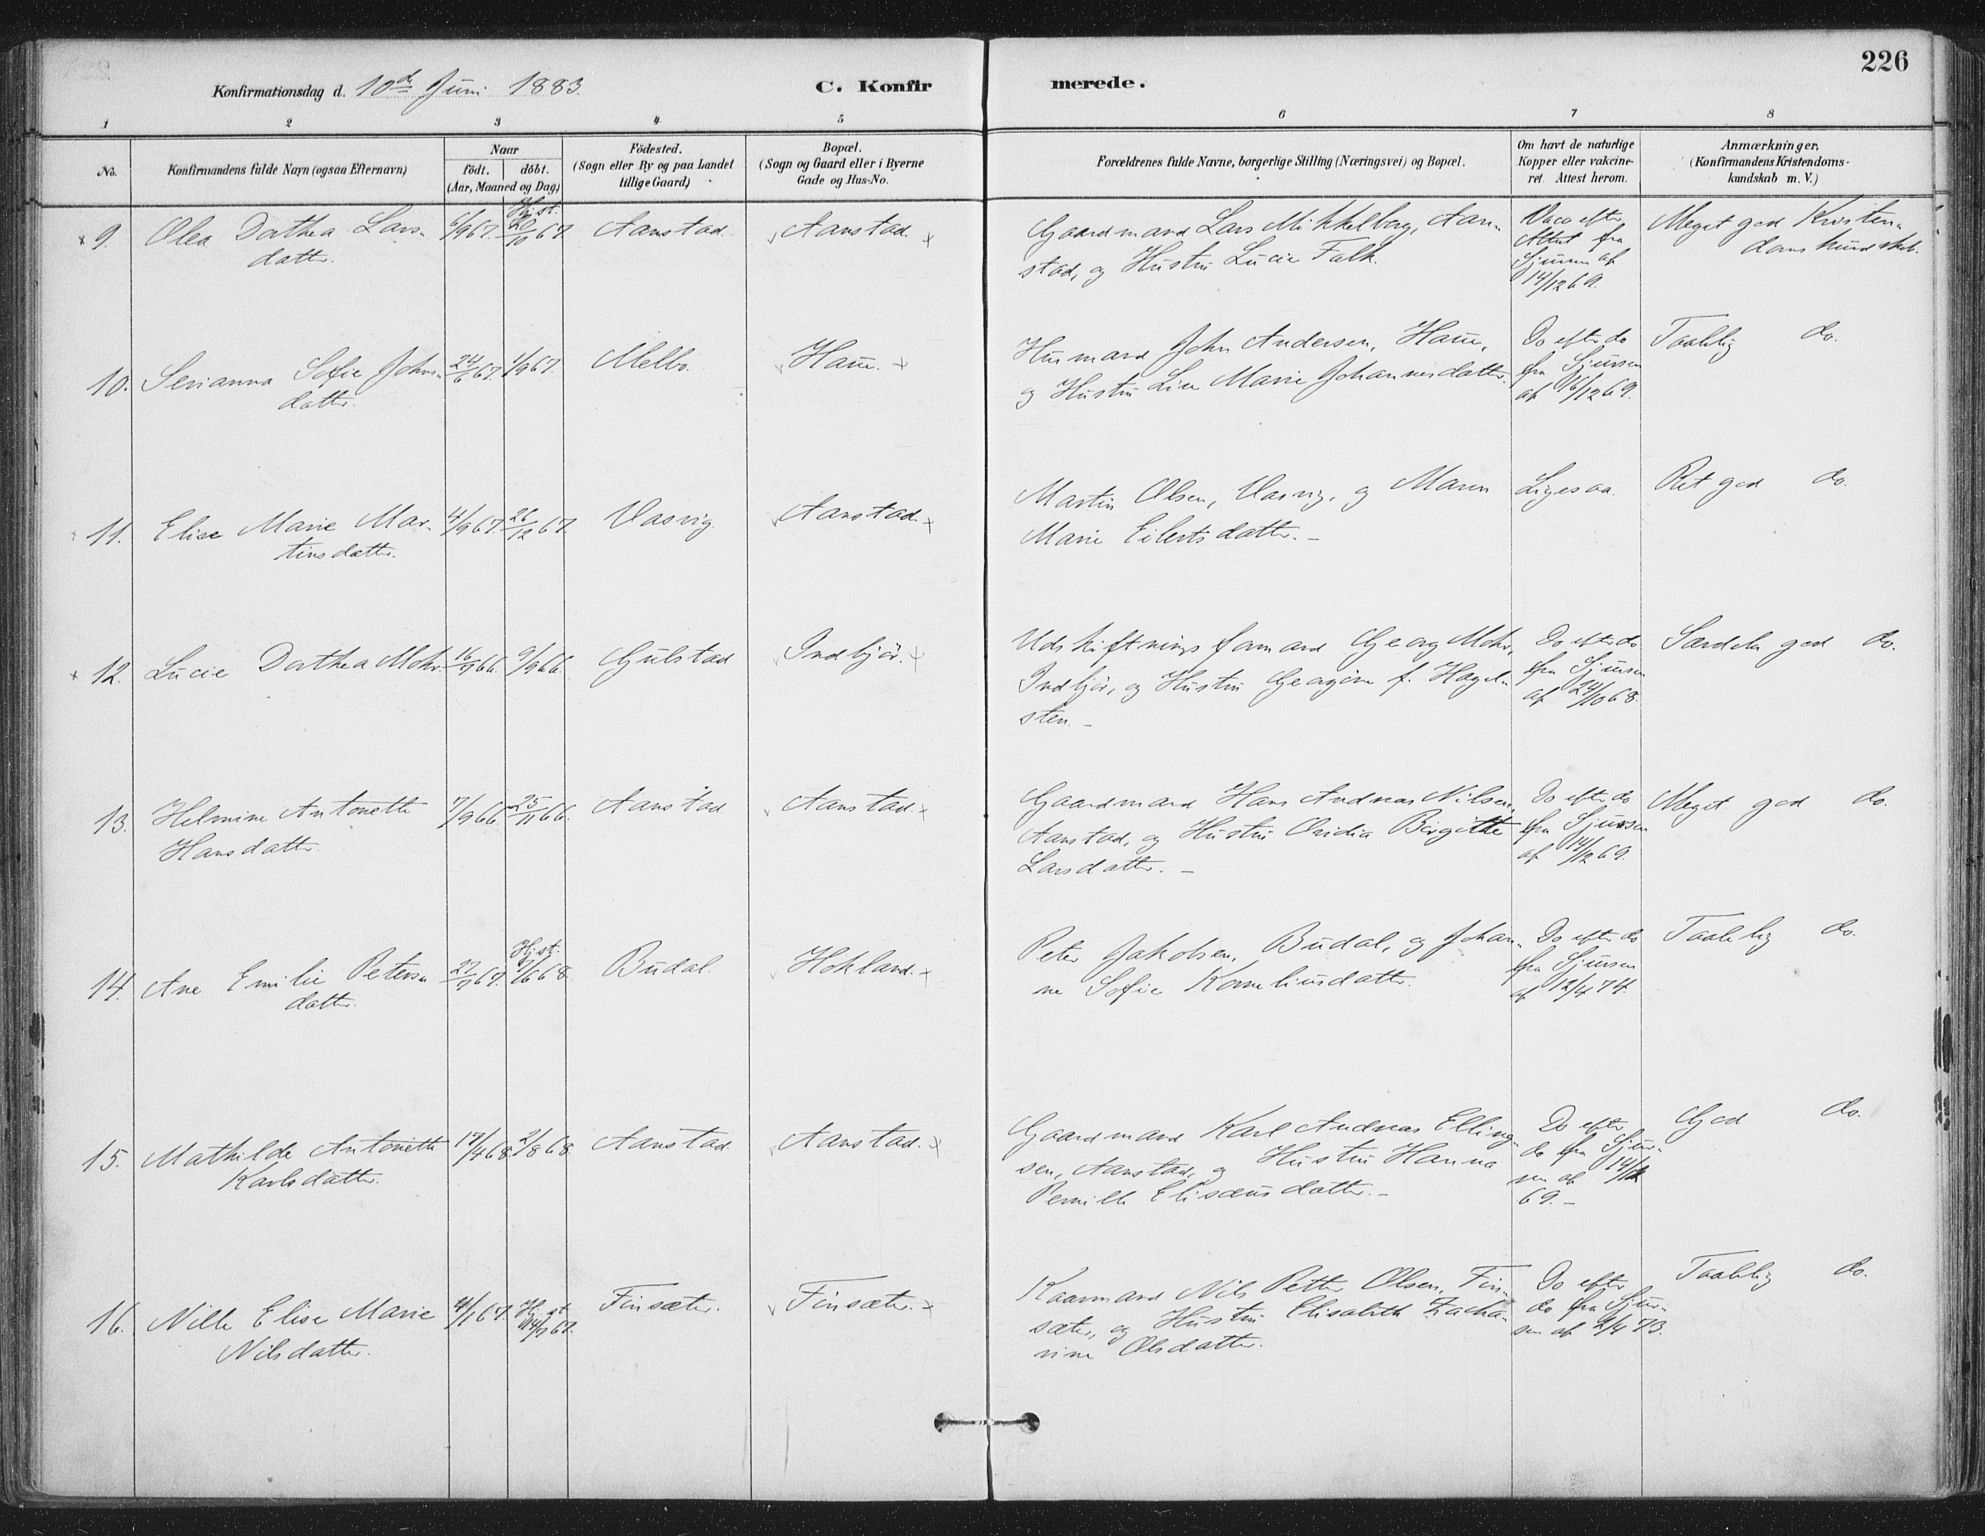 226
Konfirmationsdag d. 10de Juni 1883. C. Konfirmerede.
1 2 3 4 5 6 7 8
No.
Konfirmandens fulde Navn (ogsaa Efternavn)
Naar
født. døbt.
(Aar, Maaned og Dag)
Fødested.
(Sogn eller By og paa Landet
tillige Gaard)
Bopæl.
(Sogn og Gaard eller i Byerne
Gade og Hus-No.
Forældrenes fulde Navne, borgerlige Stilling (Næringsvei) og Bopæl.
Om havt de naturlige
Kopper eller vakcine-
ret. Attest herom.
Anmærkninger.
(Konfirmandens Kristendoms-
kundskab m. V.)
9. Olea Dorthea Lars- 6/9 67. Hjst. 20/10 67. Aanstad. Aanstad.
datter.
Gaardmand Lars Mikkelborg, Aan-
stad, og Hustru Lucie Falk.
Vacc. efter
Attest fra
Sjursen af
14/12 69.
Meget god Kristen-
doms kundskab.
10. Serianna Sofie Johns- 24/6 67. 1/9 67. Melbo. Haue.
datter.
Husmand John Andersen, Haue,
og Hustru Lise Marie Johannesdatter.
Do efter do
fra Sjursen
af 16/12 69.
Taalelig do.
11. Elise Marie Mar- 4/9 67. 26/12 67. Vasvig. Aanstad.
tinsdatter.
Martin Olsen, Vasvig, og Maren
Marie Eilertsdatter. -
Ligesaa.
Ret god do.
12. Lucie Dorthea Mohr. 9/9 66. Gulstad Indbjør.
Udskiftningsformand Georg Mohr,
Indbjør, og Hustru Georgine f. Hagel-
sten. -
Do efter do
fra Sjursen
af 24/10 68.
Særdeles god do.
13. Helmine Antonette 7/9 66. 25/11 66. Aanstad Aanstad.
Hansdatter.
Gaardmand Hans Andreas Nilsen,
Aanstad, og Hustru Ovidia Birgitte
Larsdatter. -
Do efter do
fra Sjursen
af 14/12 69.
Meget god do.
14. Ane Emilie Peters- Hjst. 1/6 68. Budal. Hokland.
datter.
Peter Jakobsen, Budal, og Johan-
ne Sofie Korneliusdatter.
Do efter do
fra Sjursen
af 12/4 74.
Taalelig do.
15. Mathilde Antonette 17/4 68. 2/8 68. Aanstad. Aanstad.
Karlsdatter.
Gaardmand Karl Andreas Elling-
sen, Aanstad, og Hustru Hanna
Pernille Elisæusdatter. -
Do efter
do fra Sjur-
sen af 14/12
69. -
God do.
16. Nille Elise Marie 4/1 67. Hjst. Finsæter. Finsæter.
Nilsdatter.
Kaarmand Nils Petter Olsen, Fin-
sæter, og Hustru Elisabeth Zacha-
rine Olsdatter.
Do efter
do fra Sjur-
sen af 2/4 73.
Taalelig do.